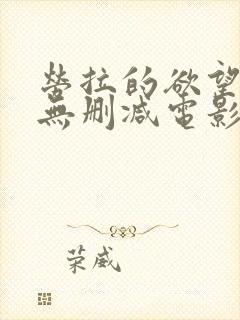 劳拉的欲望
無删减電影
荣威